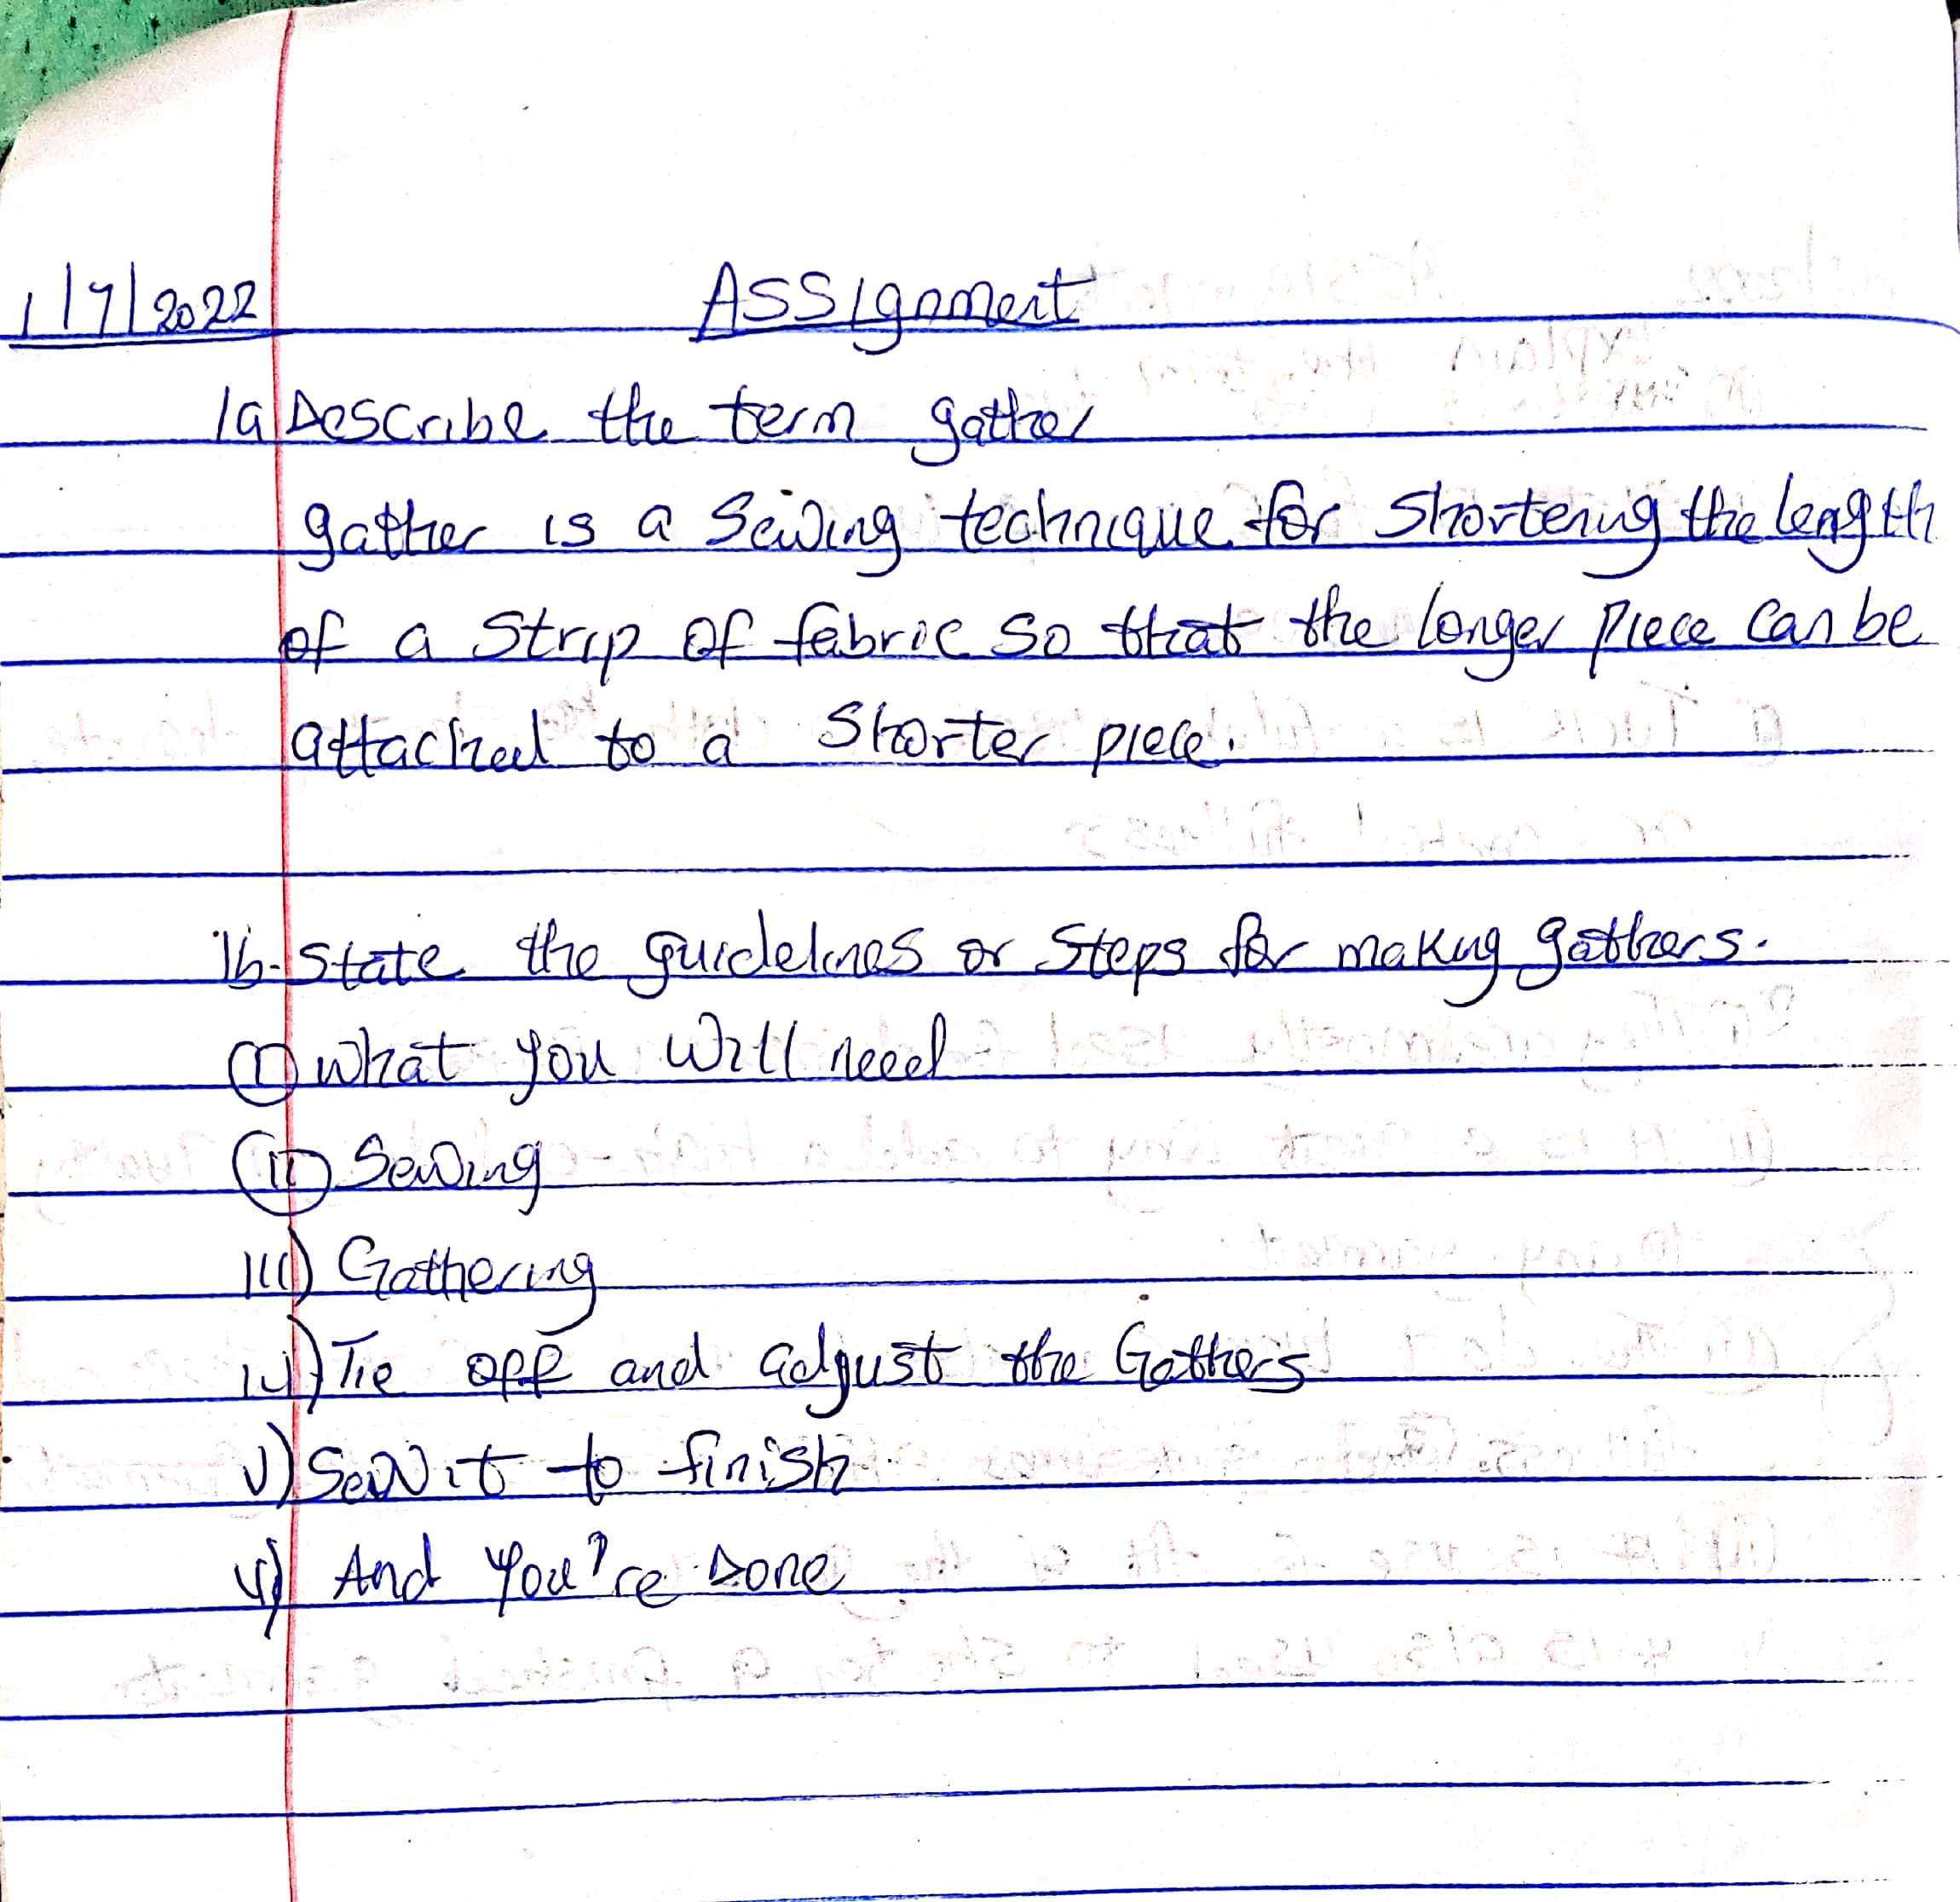 1/7/2022 Assignment
1a Describe the term gather
gather is a Sewing technique for Shortening the length
of a Strip of fabric So that the longer Piece can be
attached to a Shorter piece.
1b. State the guidelines or Steps for making gathers.
(I) what you will need
(II) Sewing
III) Gathering
iv) Tie off and adjust the Gathers
v) Sew it to finish
vi) And you're Done